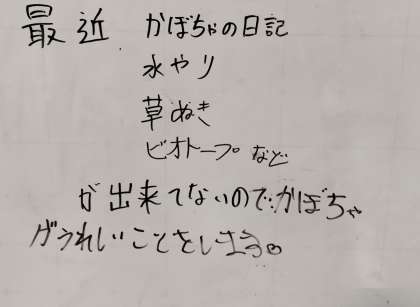 最近 かぼちゃの日記
水やり
草ぬき
ビオトープ など
が出来てないのでかぼちゃ
がうれしいことをします。